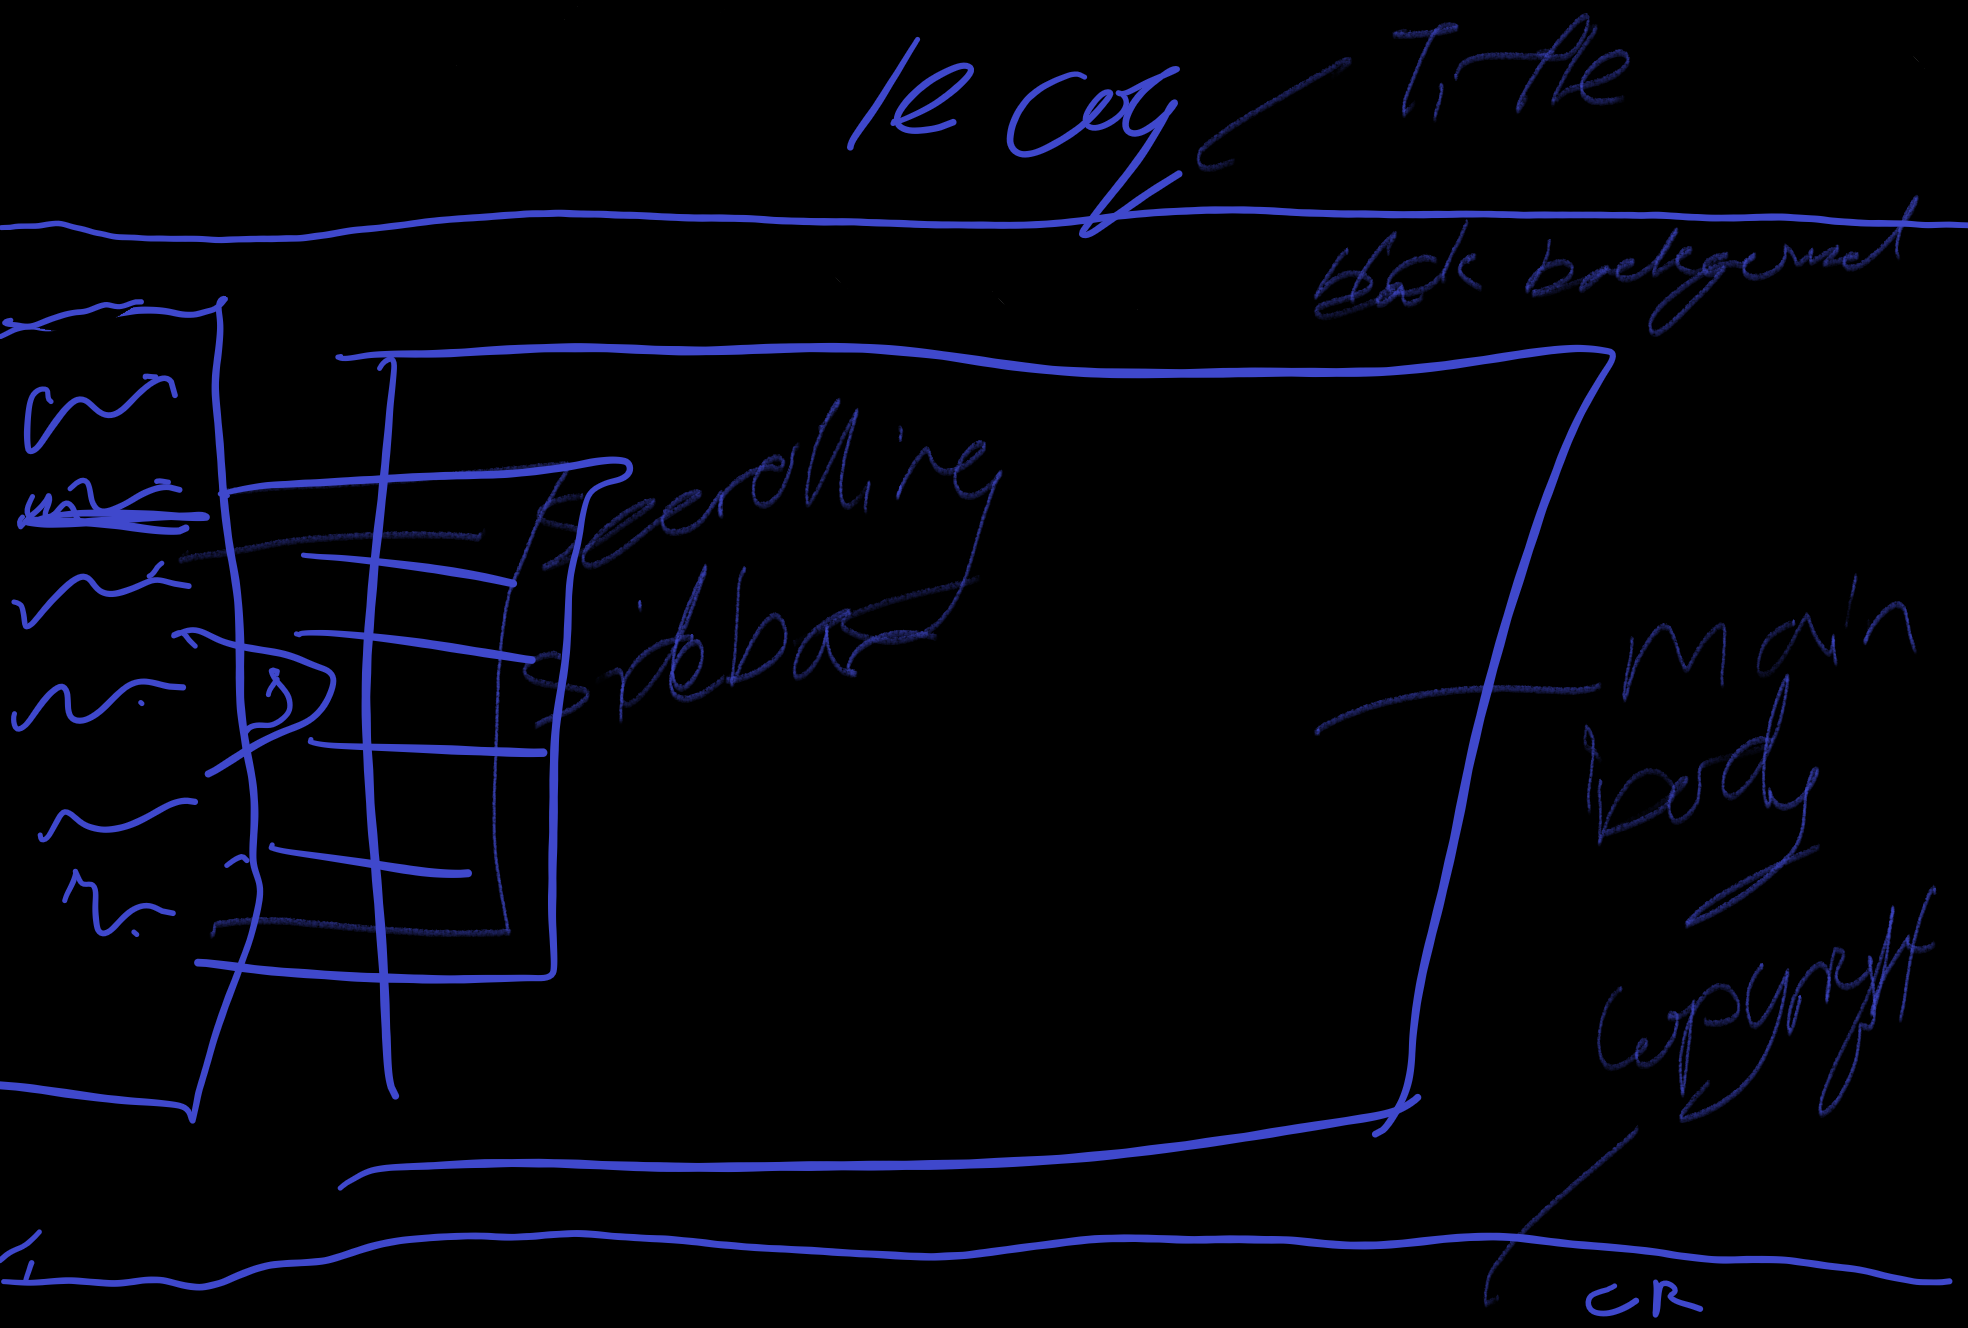 le coq
Title
black background
Scrolling
sidebar
Main
body
copyright
CR